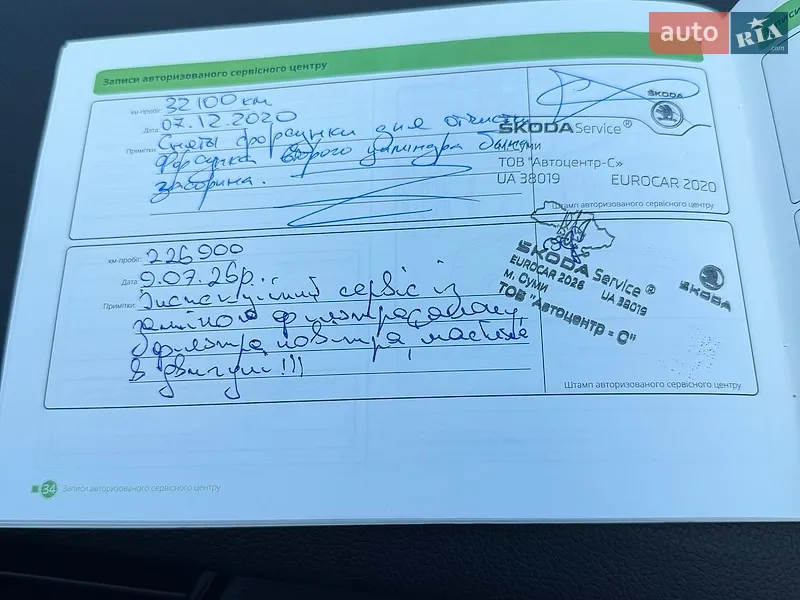 auto RIA .com
Записи авторизованого сервісного центру
км-пробіг: 32100 км
Дата: 07.12.2020
Примітки: Сняты форсунки для отчистки
Форсунка второго цилиндра была
засорина.
ŠKODA
ŠKODA Service®
м. Суми
ТОВ "Автоцентр-С»
UA 38019 EUROCAR 2020
Штамп авторизованого сервісного центру
км-пробіг: 226900
Дата: 9.07.26р.
Примітки: Інспекційний сервіс із
заміною фильтра салону,
фильтра повітря, мастила
в двигуні!!!
ŠKODA Service®
EUROCAR 2026 UA 38019
м. Суми
ТОВ "Автоцентр - С"
ŠKODA
Штамп авторизованого сервісного центру
34 Записи авторизованого сервісного центру